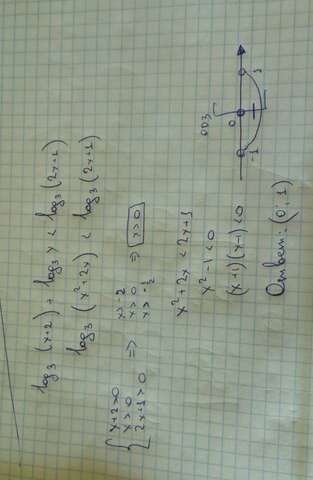 log₃ (x+2) + log₃ x < log₃ (2x+1)
log₃ (x²+2x) < log₃ (2x+1)
{ x+2>0 => x>-2 => x>0
x>0 x>0
2x+1>0 x>-1/2
x²+2x < 2x+1
x²-1<0
(x+1)(x-1)<0
ОДЗ
-1 0 1
Ответ: (0; 1)